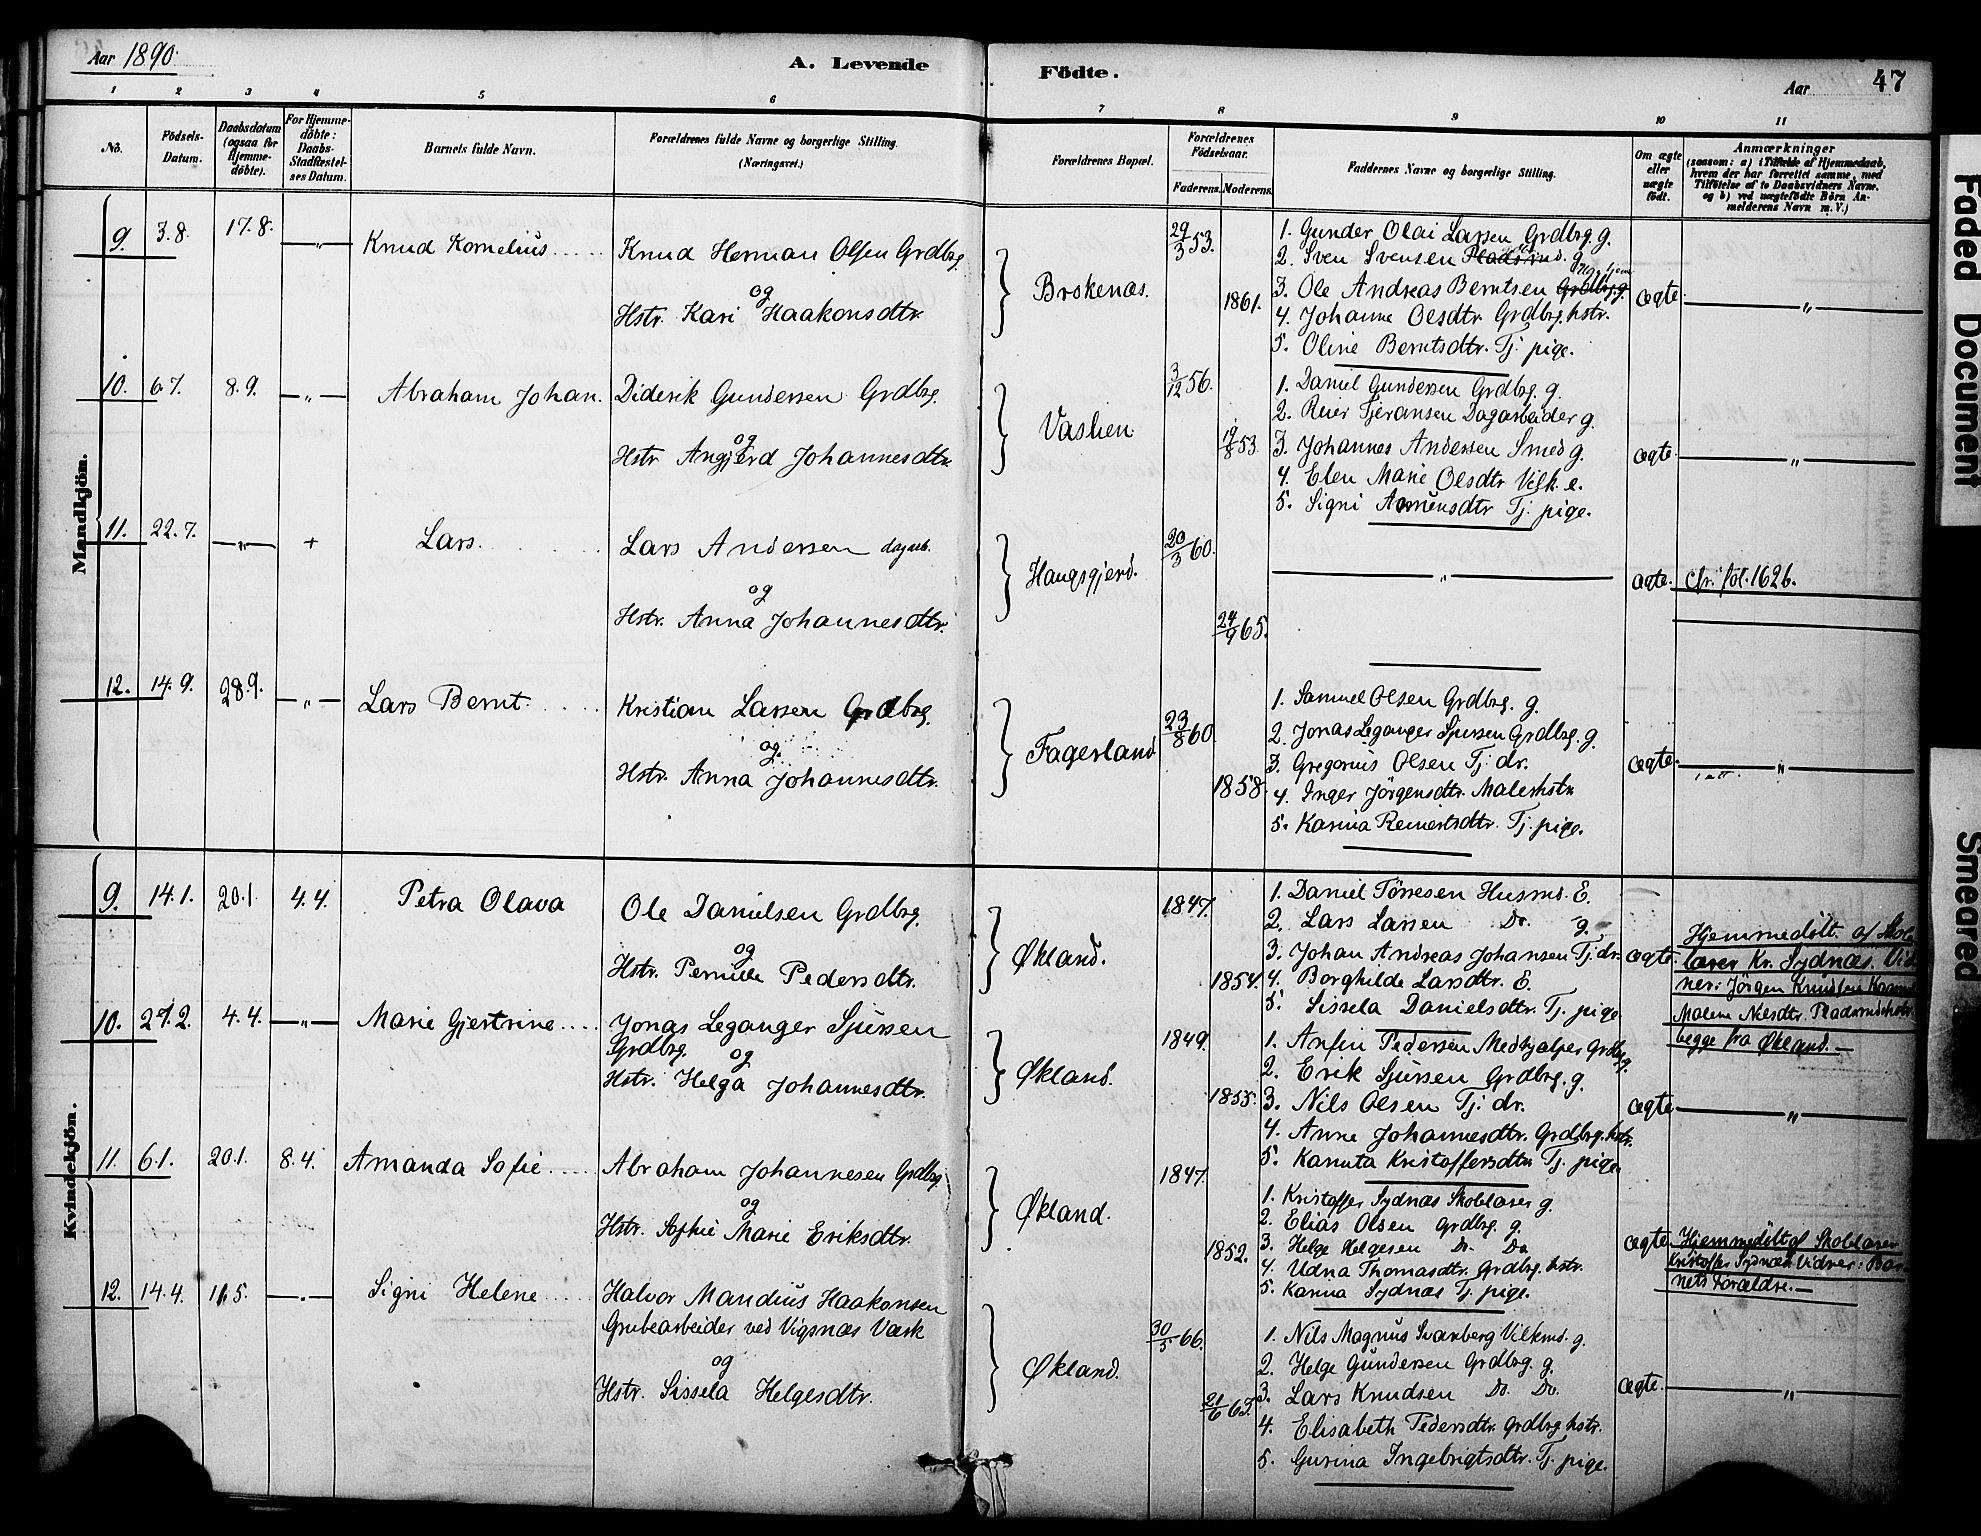 Aar 1890.
A. Levende Födte.
Aar
47
1 2 3 4 5 6 7 8 9 10 11
No.
Födsels-
Datum.
Daabsdatum
(ogsaa for
Hjemme-
döbte).
For Hjemme-
döbte:
Daabs-
Stadfæstel-
ses Datum.
Barnets fulde Navn.
Forældrenes fulde Navne og borgerlige Stilling.
(Næringsvei.)
Forældrenes Bopæl.
Forældrenes
Födselsaar.
Faderens. Moderens.
Faddernes Navne og borgerlige Stilling.
Om ægte
eller
uægte
födt.
Anmærkninger
(saasom: a) i Tilfælde af Hjemmedaab,
hvem der har forrettet samme, med
Tilföielse af to Daabsvidners Navne.
og b) ved uægtefödte Börn An-
melderens Navn m. V.)
Mandkjön.
9. 3.8. 17.8. — „ — Knud Kornelius Knud Herman Olsen Grdbrg.
og
Hstr. Kari Haakonsdtr.
Brokenæs.
29/3 53.
1861.
1. Gunder Olai Larsen Grdbrg. g.
2. Sven Svensen g.
3. Ole Andreas Berntsen
4. Johanne Olsdtr. Grdbrg. hstr.
5. Oline Berntsdtr. Tj. pige.
ægte — „ —
10. 6.7. 8.9. — „ — Abraham Johan. Diderik Gundersen Grdbrg.
og
Hstr. Angjerd Johannesdtr.
Vaslien
3/12 56.
19/8 53.
1. Daniel Gundersen Grdbrg. g.
2. Reier Tjeransen Dagarbeider g.
3. Johannes Andersen Smed g.
4. Elen Marie Olsdtr. Vilk. e.
5. Signi Tj. pige.
ægte — „ —
11. 22.7. — „ — + Lars. Lars Andersen dagarb.
og
Hstr. Anna Johannesdtr.
Haugsgjerd.
20/3 60.
24/9 65.
— „ —
ægte. cfr. fol. 1626.
12. 14.9. 28.9. — „ — Lars Bernt. Kristian Larsen Grdbrg.
og
Hstr. Anna Johannesdtr.
Fagerland
23/8 60.
1858.
1. Samuel Olsen Grdbrg. g.
2. Jonas Leganger Sjursen Grdbrg. g.
3. Gregorius Olsen Tj. dr.
4. Inger Jörgensdtr. Malerhstr.
5. Karina Reinertsdtr. Tj. pige.
ægte — „ —
Kvindekjön.
9. 14.1. 20.1. 4.4. Petra Olava Ole Danielsen Grdbrg.
og
Hstr. Pernille Pedersdtr.
Økland.
1847.
1854.
1. Daniel Törresen Husmd. E.
2. Lars Larsen Do. g.
3. Johan Andreas Johansen Tj. dr.
4. Borghilde Larsdtr. E.
5. Sissela Danielsdtr. Tj. pige
ægte
Hjemmedöbt af Skol-
lærer Kr. Sydnæs. Vid-
ner: Jörgen Knudsen
Malene Nilsdtr. Pladsmdshstr.
begge fra Økland. —
10. 27.2. 4.4. — „ — Marie Gjertrine Jonas Leganger Sjursen
Grdbrg.
og
Hstr. Helga Johannesdtr.
Økland.
1849.
1855.
1. Anfin Pedersen Medhjælper Grdbrg.
g.
2. Erik Sjursen Grdbrg. g.
3. Nils Olsen Tj. dr.
4. Anne Johannesdtr. Grdbrg. hstr.
5. Kanuta Kristoffersdtr. Tj. pige
ægte — „ —
11. 6.1. 20.1. 8.4. Amanda Sofie Abraham Johannesen Grdbrg.
og
Hstr. Sophie Marie Eriksdtr.
Økland.
1847.
1852.
1. Kristoffer Sydnæs Skolelærer g.
2. Elias Olsen Grdbrg. g.
3. Helge Helgesen Do. Do.
4. Udna Thomasdtr. Grdbrg. hstr.
5. Kanna Sydnæs Tj. pige.
ægte
Hjemmedöbt af Skolelærer
Kristoffer Sydnæs. Vidner: Bar-
nets Forældre. —
12. 14.4. 11.5. — „ — Signi Helene Halvor Mandius Haakonsen
Grubearbeider ved Vigsnæs Værk
og
Hstr. Sissela Helgesdtr.
Økland.
30/5 66.
21/6 63.
1. Nils Magnus Svanberg Vilkmd. g.
2. Helge Gundersen Grdbrg. g.
3. Lars Knudsen Do. Do.
4. Elisabeth Pedersdtr. Grdbrg. hstr.
5. Gurina Ingebrigtsdtr. Tj. pige.
ægte. — „ —
Faded Document
Smeared